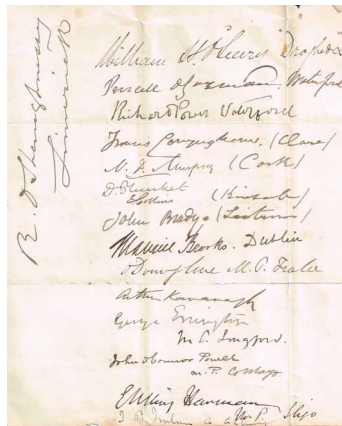 William H O'Leary "Drogheda"
Purcell O'Gorman. Waterford
Richard Power Waterford
Francis Conyngham. (Clare)
N. D. Murphy (Cork)
Eugene Collins (Kinsale)
John Brady. (Leitrim)
Maurice Brooks. Dublin
O'Donoghue M.P. Tralee
Arthur Kavanagh
George Errington
M P Longford.
John O'Connor Power
M.P. Co Mayo
King Harman
Sligo
R. O'Shaughnessy
Limerick